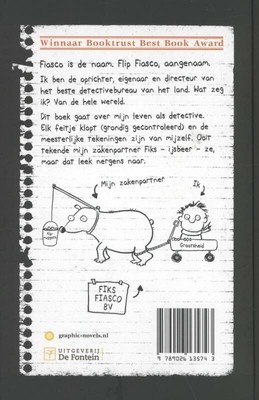 Winnaar Booktrust Best Book Award
Fiasco is de naam. Flip Fiasco, aangenaam.
Ik ben de oprichter, eigenaar en directeur van
het beste detectivebureau van het land. Wat zeg
ik? Van de hele wereld.
Dit boek gaat over mijn leven als detective.
Elk feitje klopt (grondig gecontroleerd) en de
meesterlijke tekeningen zijn van mijzelf. Ooit
tekende mijn zakenpartner Fiks - ijsbeer - ze,
maar dat leek nergens naar.
Mijn zakenpartner
Ik
Grootsheid
FIKS
FIASCO
BV
graphic-novels.nl
UITGEVERIJ
De Fontein
9 789026 135743